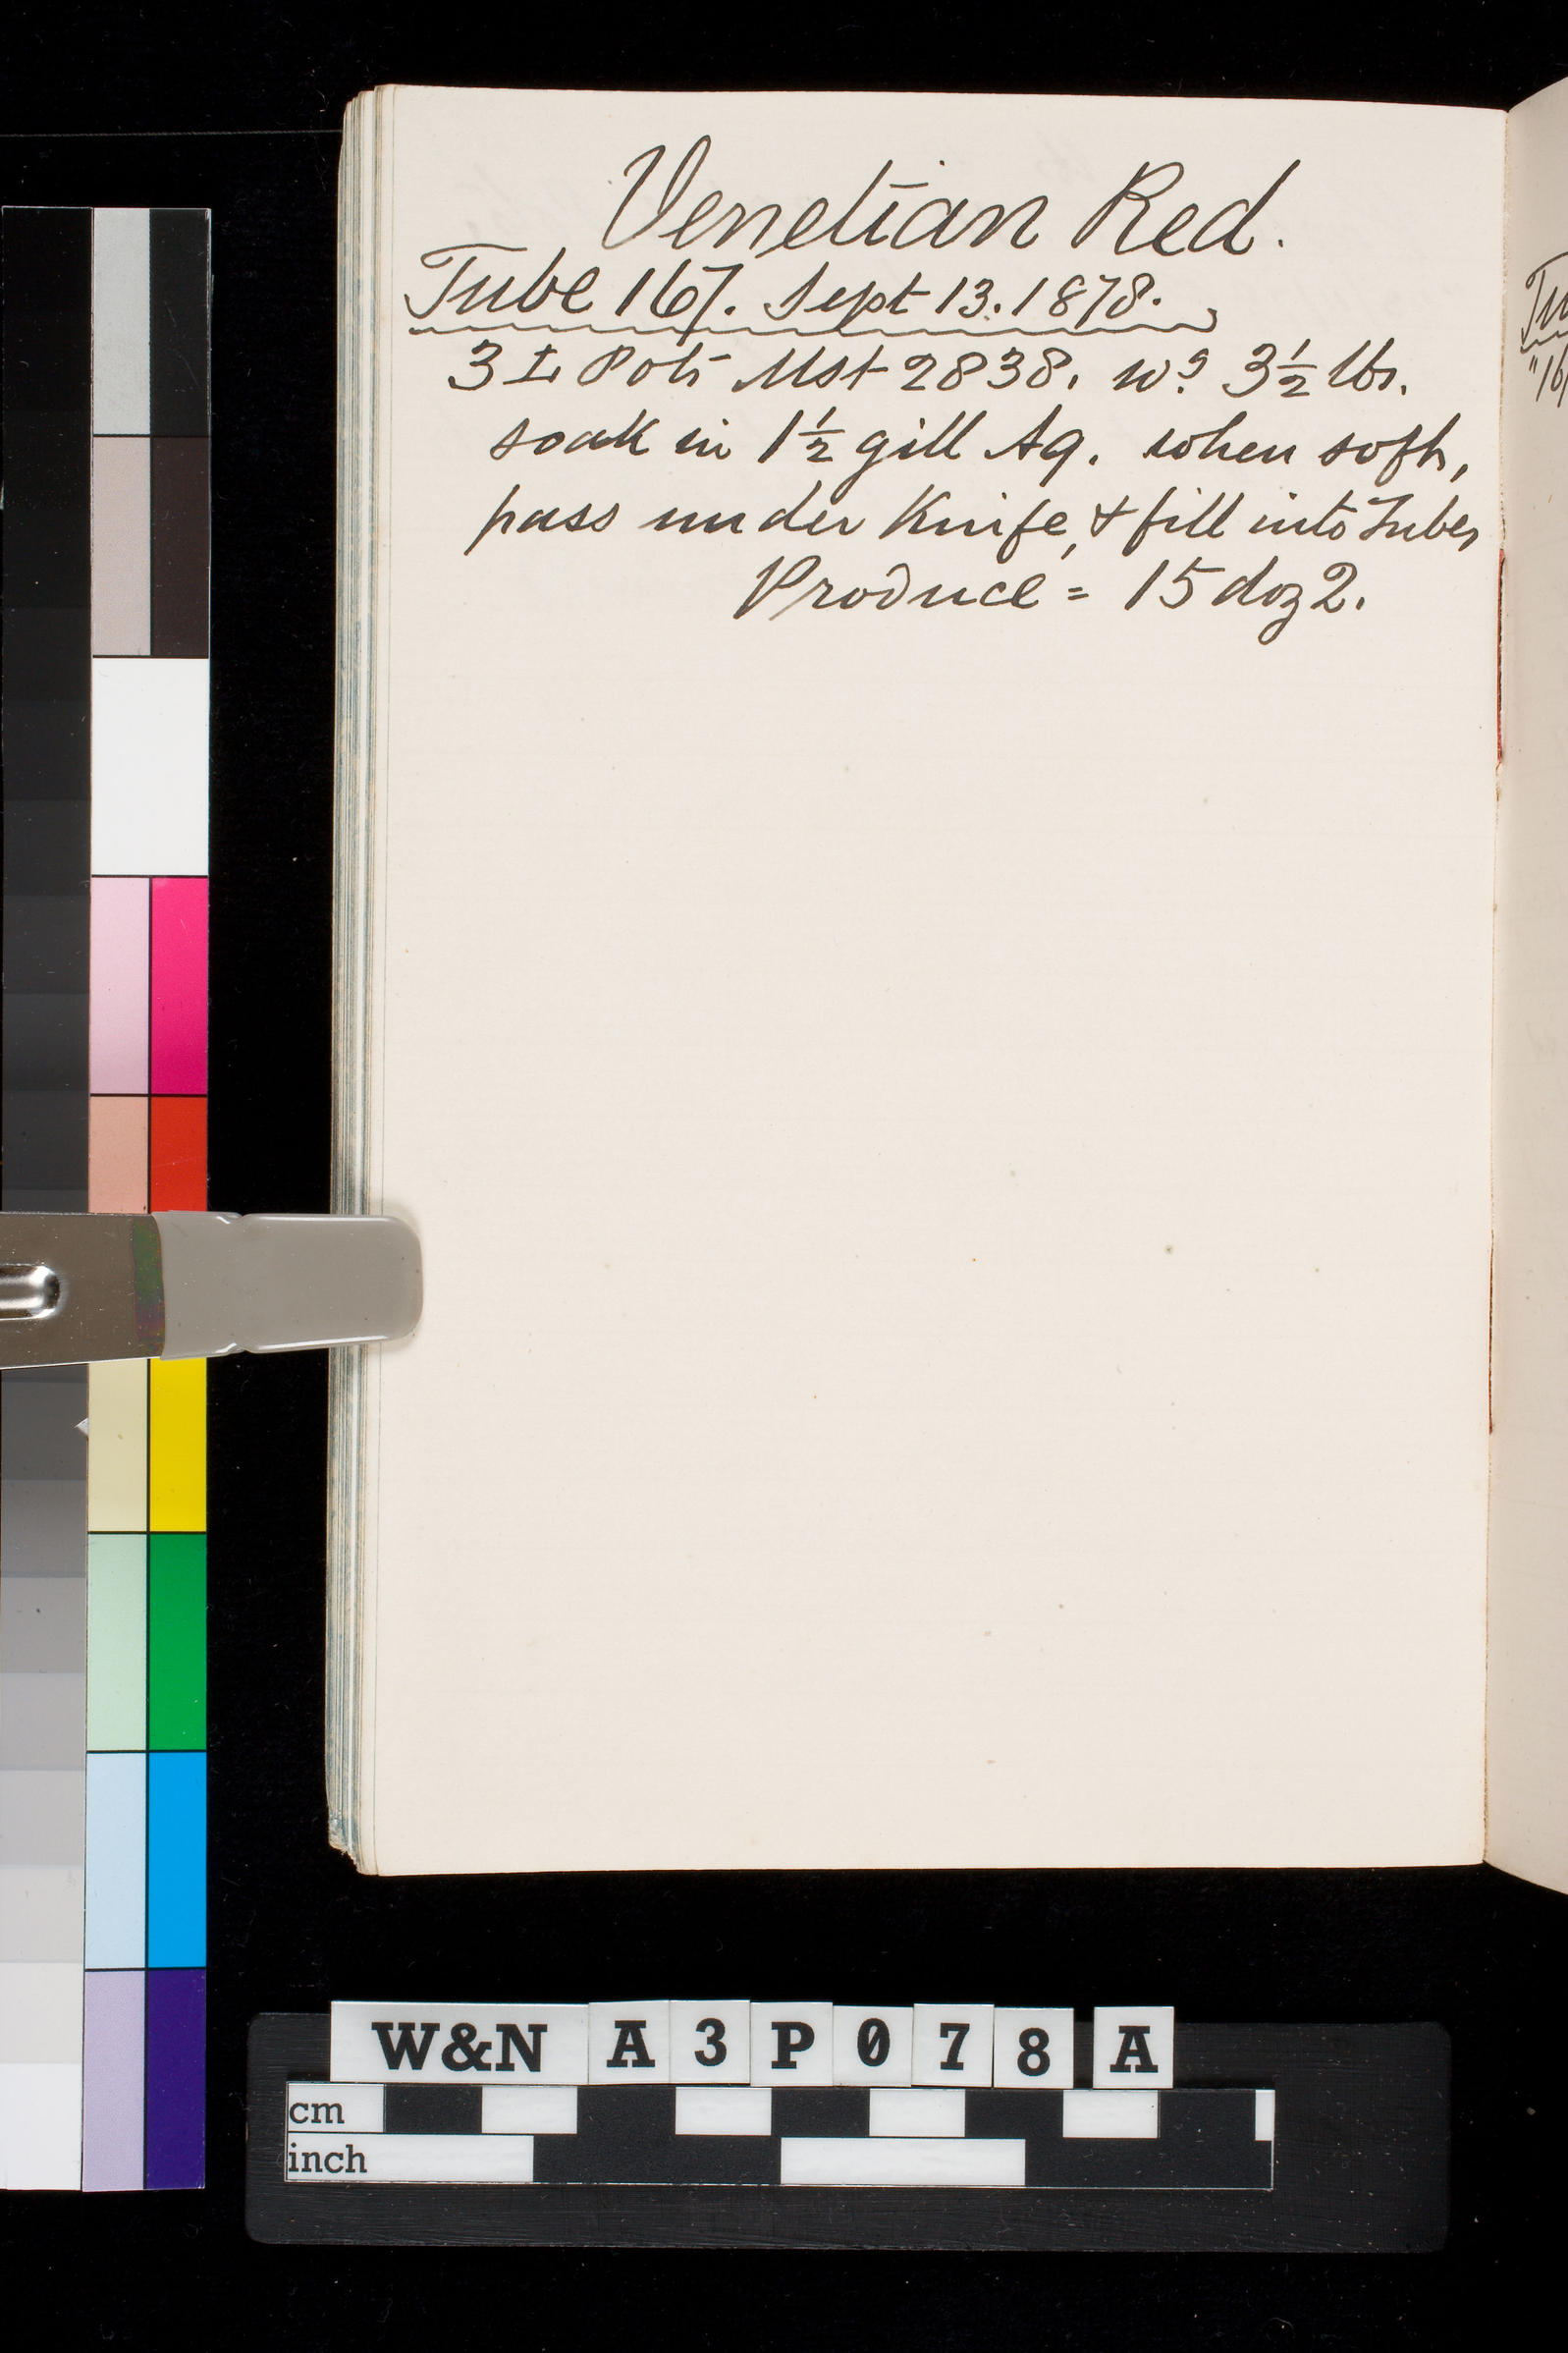 Venetian Red.
Tube 167. Sept 13. 1878.
3 L Pots Mst 2838. wg 3½ lbs.
soak in 1½ gill Aq. when soft,
pass under Knife, & fill into Tubes
Produce = 15 doz 2.
Tu
"16
W&N A3P078A
cm
inch